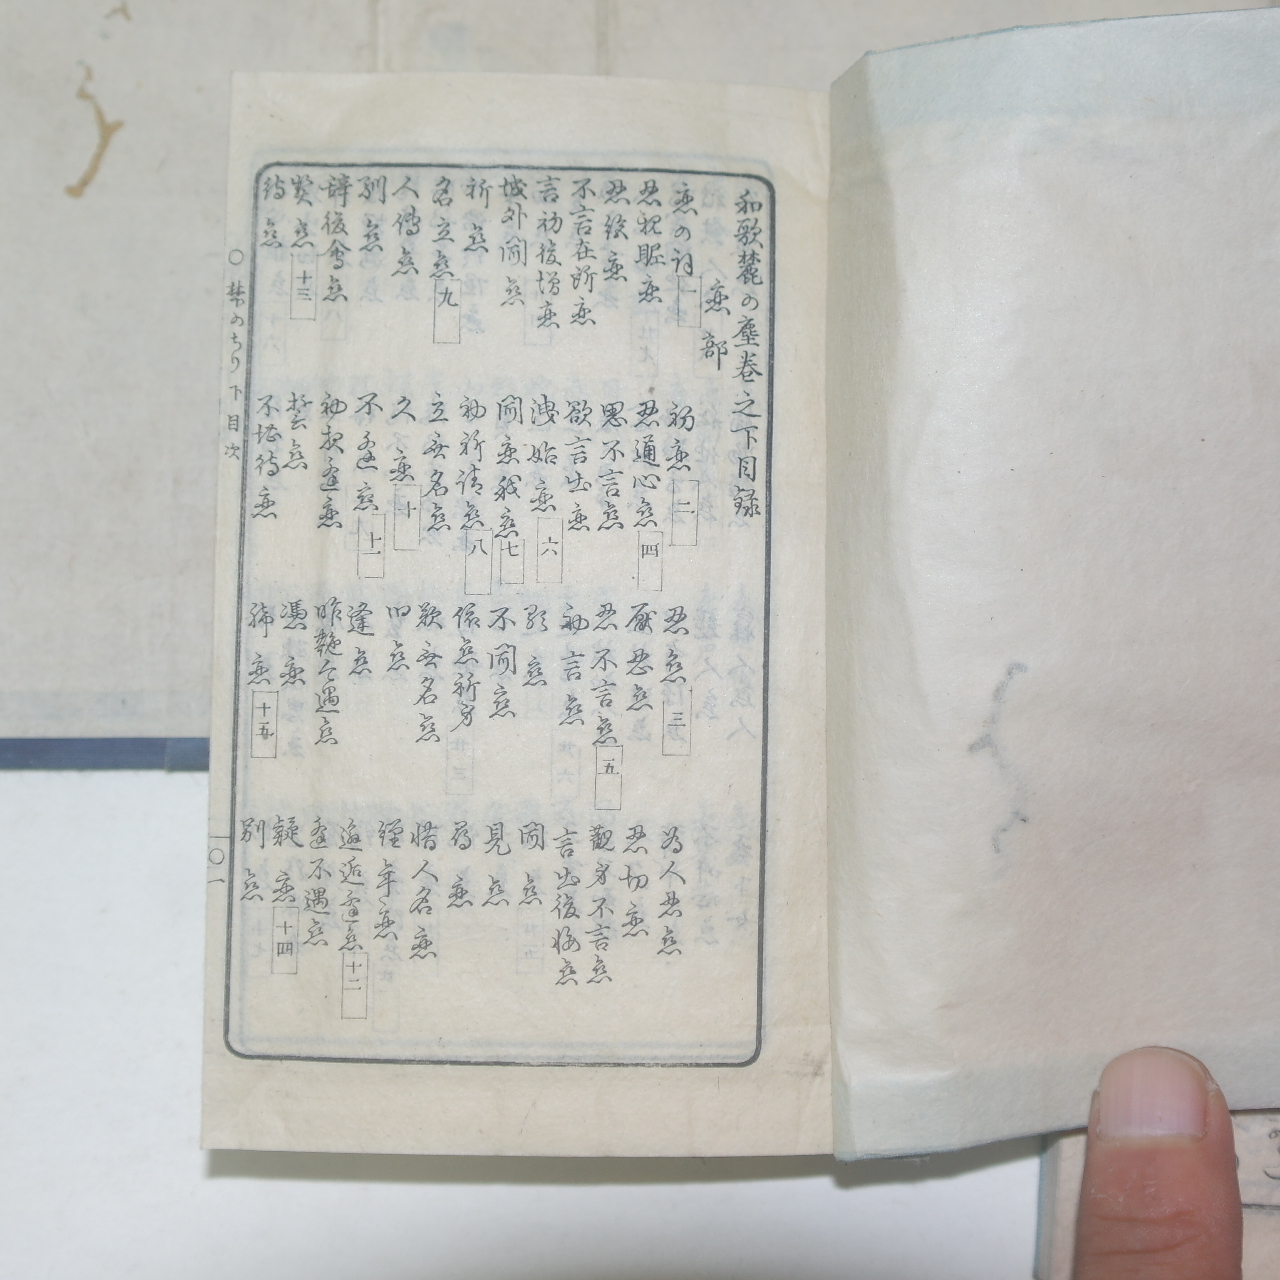 和歌麓の塵巻之下目録
恋部
恋の詞 一 初恋 二 忍恋 三 為人忍恋
忍親昵恋 忍通心恋 四 厭忍恋 忍切恋
忍絶恋 思不言恋 忍不言恋 五 観身不言恋
不言在所恋 欲言出恋 初言恋 言出後悔恋
言初後増恋 洩始恋 六 顕恋 聞恋
城外聞恋 聞恋我恋 七 不聞恋 見恋
祈恋 初祈請恋 八 依恋祈身 尋恋
名立恋 九 立無名恋 歎無名恋 惜人名恋
人傳恋 久恋 十 旧恋 経年恋
馴恋 不逢恋 十一 逢恋 邂逅逢恋 十二
諱後会恋 初契逢恋 昨難今遇恋 逢不遇恋
契恋 十三 誓恋 憑恋 疑恋 十四
待恋 不堪待恋 帰恋 十五 別恋
〇麓のちり下目次
〇一